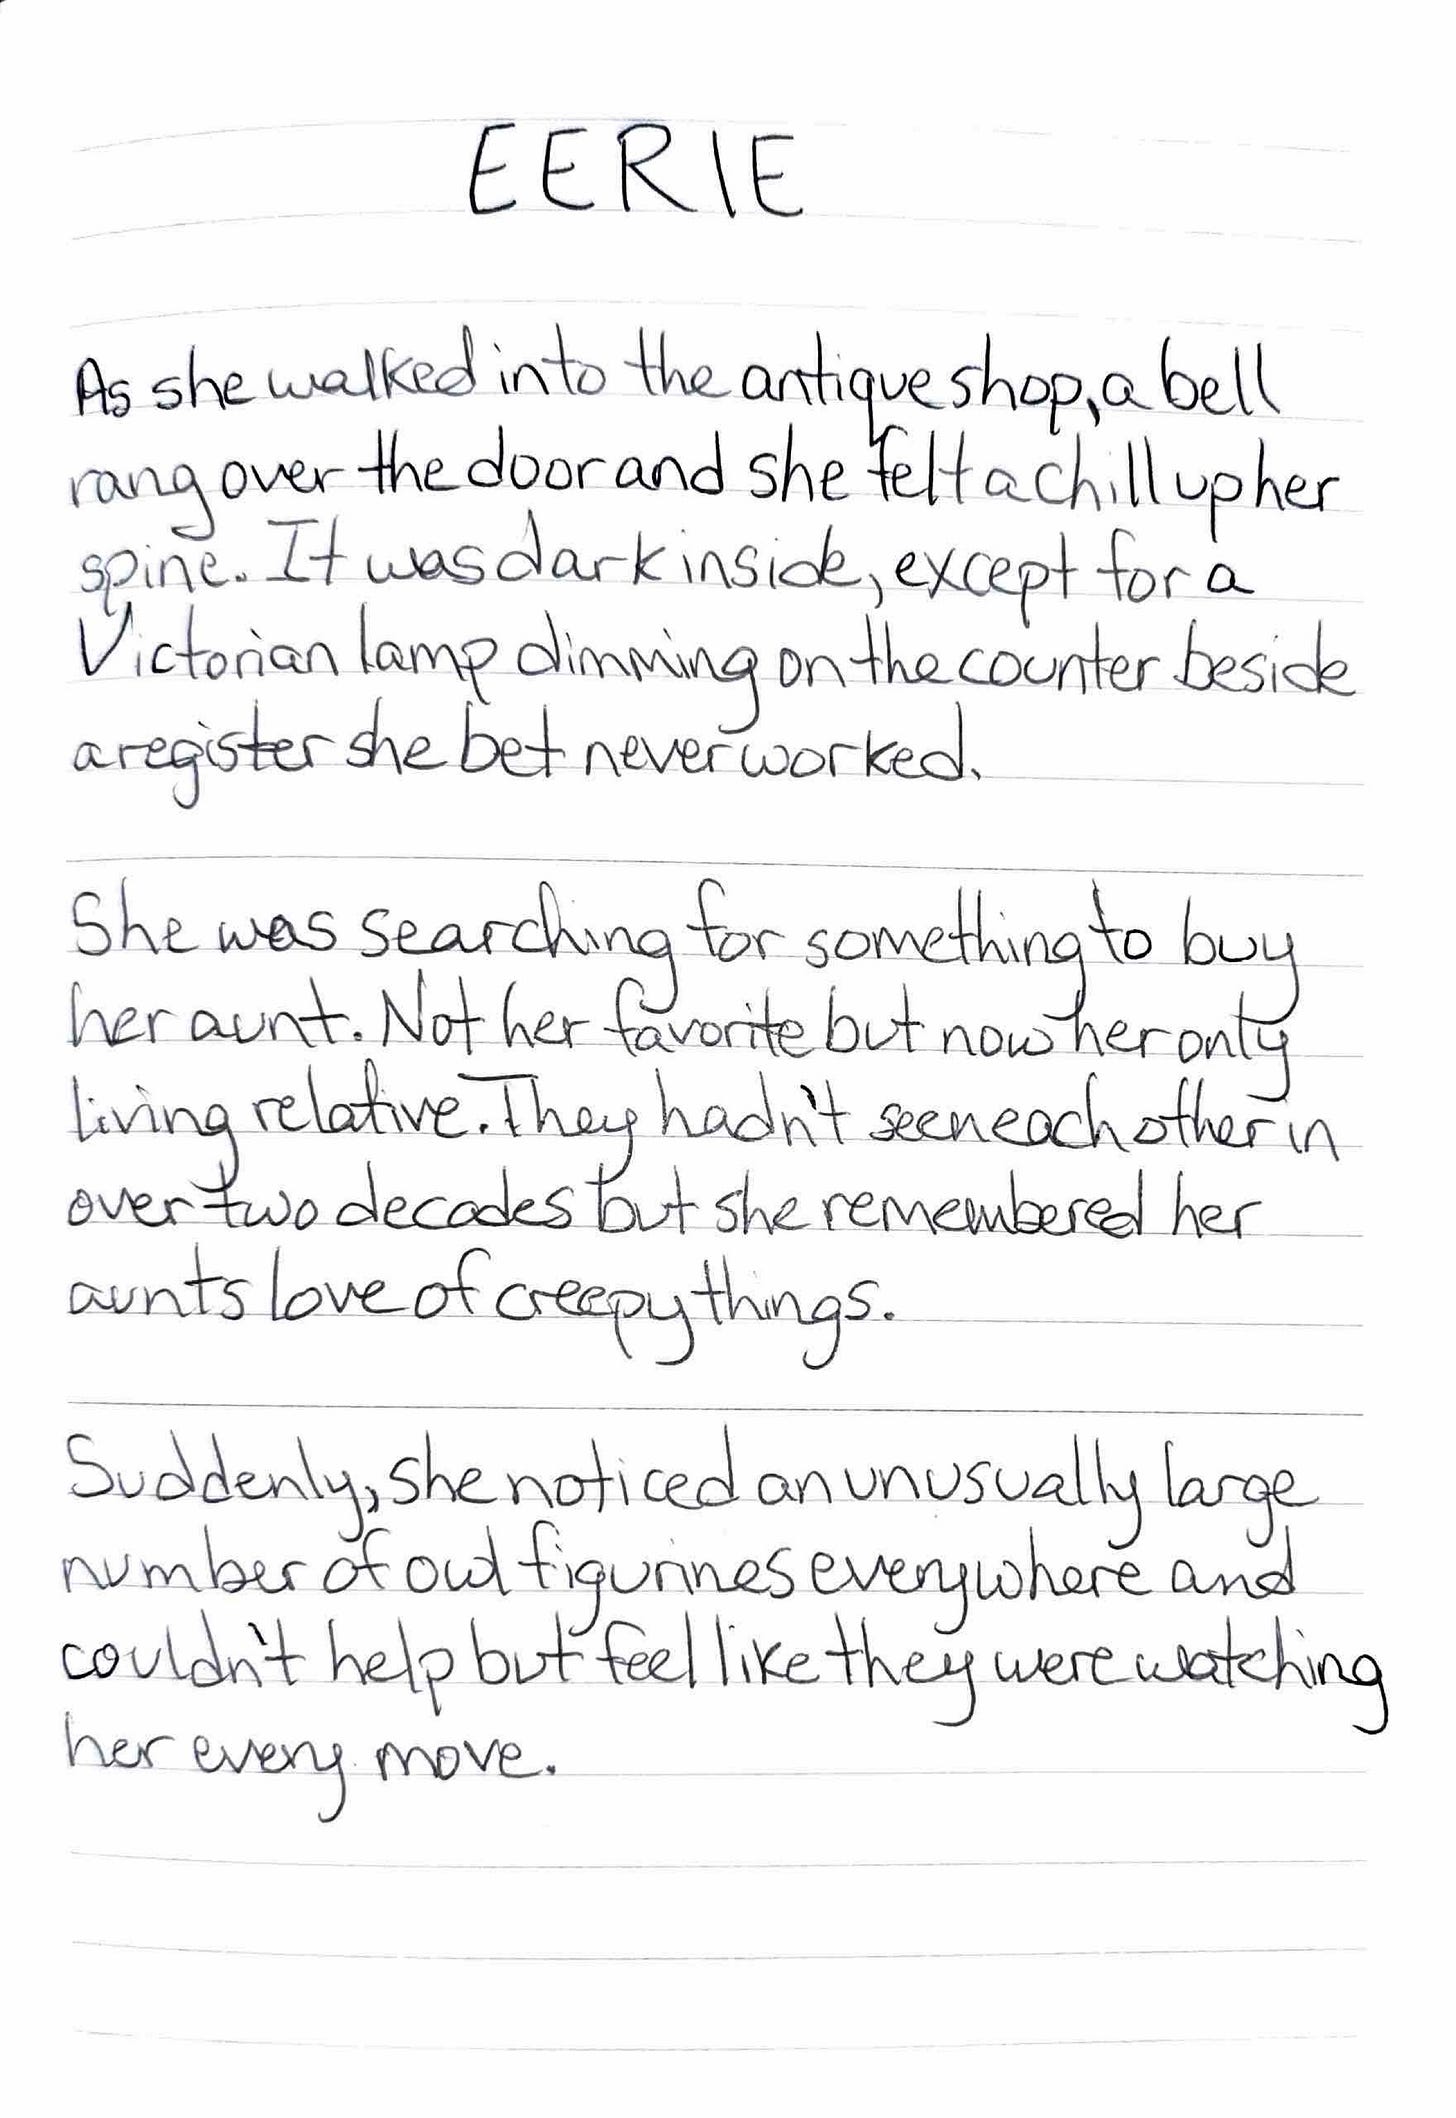 EERIE
As she walked into the antique shop, a bell
rang over the door and she felt a chill up her
spine. It was dark inside, except for a
Victorian lamp dimming on the counter beside
a register she bet never worked.
She was searching for something to buy
her aunt. Not her favorite but now her only
living relative. They hadn't seen each other in
over two decades but she remembered her
aunts love of creepy things.
Suddenly, she noticed an unusually large
number of owl figurines everywhere and
couldn't help but feel like they were watching
her every move.